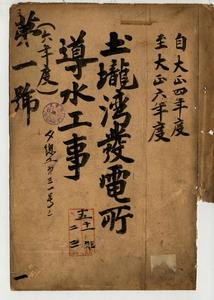 自大正四年度
至大正六年度
土壠灣發電所
導水工事
(六年度)
第一號
一